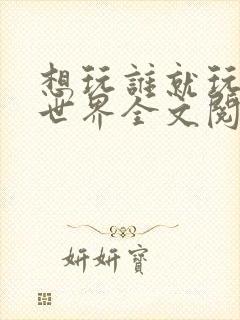 想玩誰就玩
世界全文閱
妍妍寶